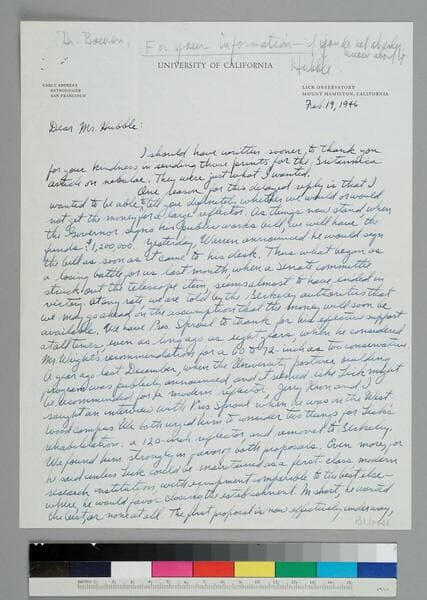 Dr. Bowen, For your information — if you do not already
know about it
Hubble
UNIVERSITY OF CALIFORNIA
CABLE ADDRESS
ASTRONOMER
SAN FRANCISCO
LICK OBSERVATORY
MOUNT HAMILTON, CALIFORNIA
Feb. 19, 1946
Dear Mr. Hubble:
I should have written sooner, to thank you
for your kindness in sending those prints for the Britannica
article on nebulae. They were just what I wanted.
One reason for this delayed reply is that I
wanted to be able to tell you definitely whether we would or would
not get the money for a large reflector. As things now stand, when
the Governor signs his public works bill, we will have the
funds: $1,200,000. Yesterday, Warren announced he would sign
the bill as soon as it came to his desk. Thus what began as
a losing battle for us last month, when a Senate committee
struck out the telescope item, seems almost to have ended in
victory. At any rate we are told by the Berkeley authorities that
we may go ahead on the assumption that the money will soon be
available. We have Pres. Sproul to thank for his effective support
at all times, even as long ago as eight years, when he considered
Mr. Wright's recommendation for a 60 to 72-inch as too conservative.
A year ago last December, when the University postwar building
program was publicly announced and it seemed like Lick might
be recommended for a modern reflector Jerry Kron and I
sought an interview with Pres Sproul when he was on the West-
wood campus. We both urged him to consider two things for Lick's
rehabilitation: a 120-inch reflector and removal to Berkeley.
We found him strongly in favor of both proposals. Even more, for
he said unless Lick could be maintained as a first-class modern
research institution with equipment comparable to the best else-
where, he would favor closing the establishment. In short, he wanted
the best or none at all. The first proposal is now effectively underway,